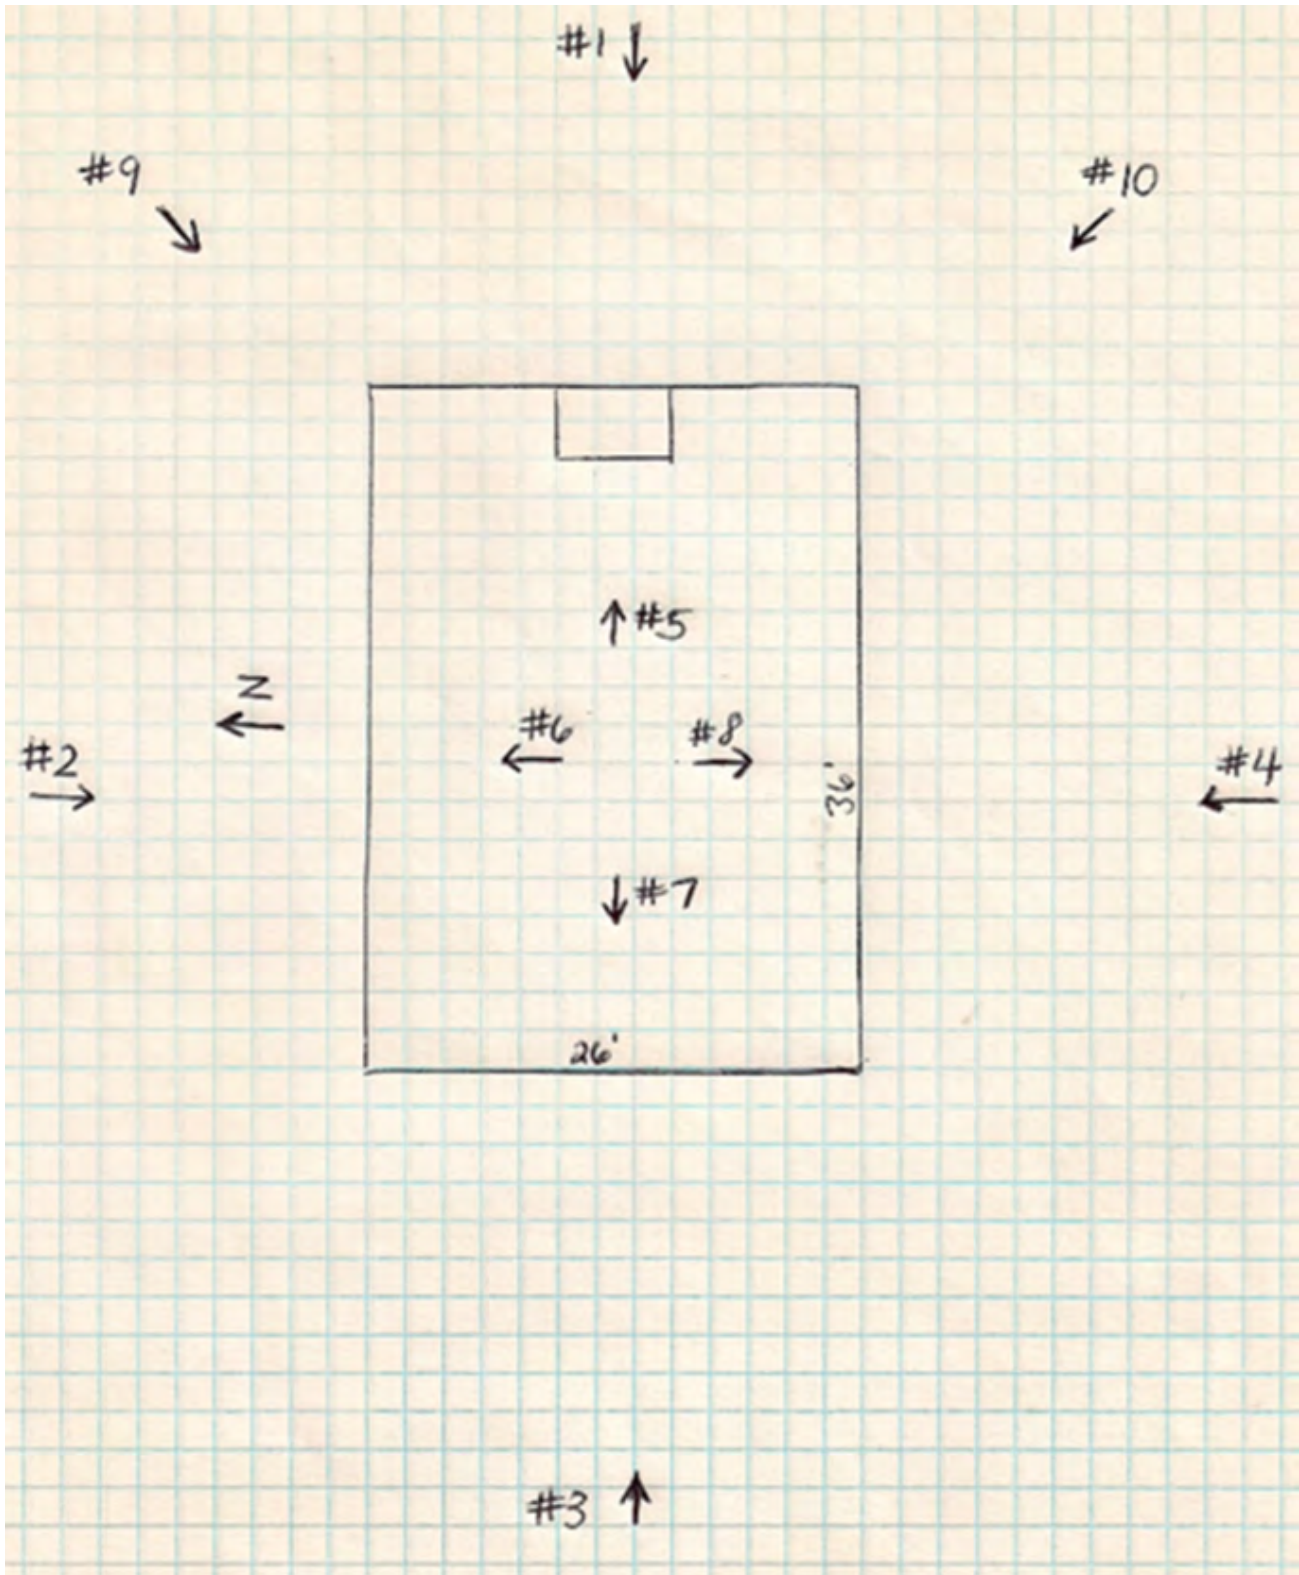 #1
#9
#10
#5
N
#6
#8
#2
#4
36'
#7
26'
#3